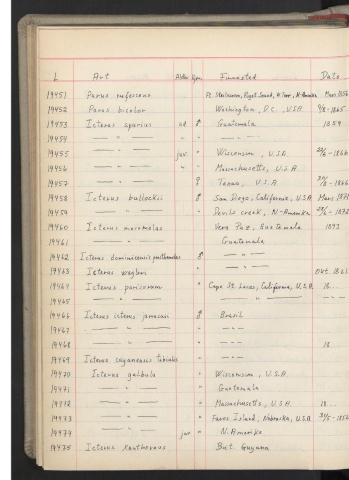 L Art Alder Kjøn Finnested Dato
19451 Parus rufescens Ft. Steilacoom, Puget Sound, W. Terr., N-Amerika Mars 1856
19452 Parus bicolor " Washington, D.C., U.S.A. 9/8-1865
19453 Icterus spurius ad. ♂ Guatemala 1859
19454 — " — " — " —
19455 — " — juv. " Wisconsin, U.S.A.
19456 — " — " " Massachusetts, U.S.A.
19457 — " — ♀ Texas, U.S.A.
19458 Icterus bullockii ♂ San Diego, California, U.S.A.
19459 — " — " Devils creek, N-Amerika
19460 Icterus " Vera Paz, Guatemala 1873
19461 — " — Guatemala
19462 Icterus dominicensis prosthemelas ♂ — " —
19463 Icterus wagleri " — " — Okt. 1861
19464 Icterus parisorum " Cape St. Lucas, California, U.S.A. 18...
19465 — " — " — " —
19466 Icterus icterus jamacaii ♂ Brasil
19467 — " — " — " —
19468 — " — " — " — 18
19469 Icterus cayanensis tibialis " — " —
19470 Icterus galbula " Wisconsin, U.S.A.
19471 — " — " Guatemala
19472 — " — " Massachusetts, U.S.A. 18...
19473 — " — " Island, Nebraska, U.S.A.
19474 — " — juv " N. Amerika
19475 Icterus xanthornus " Brit. Guyana